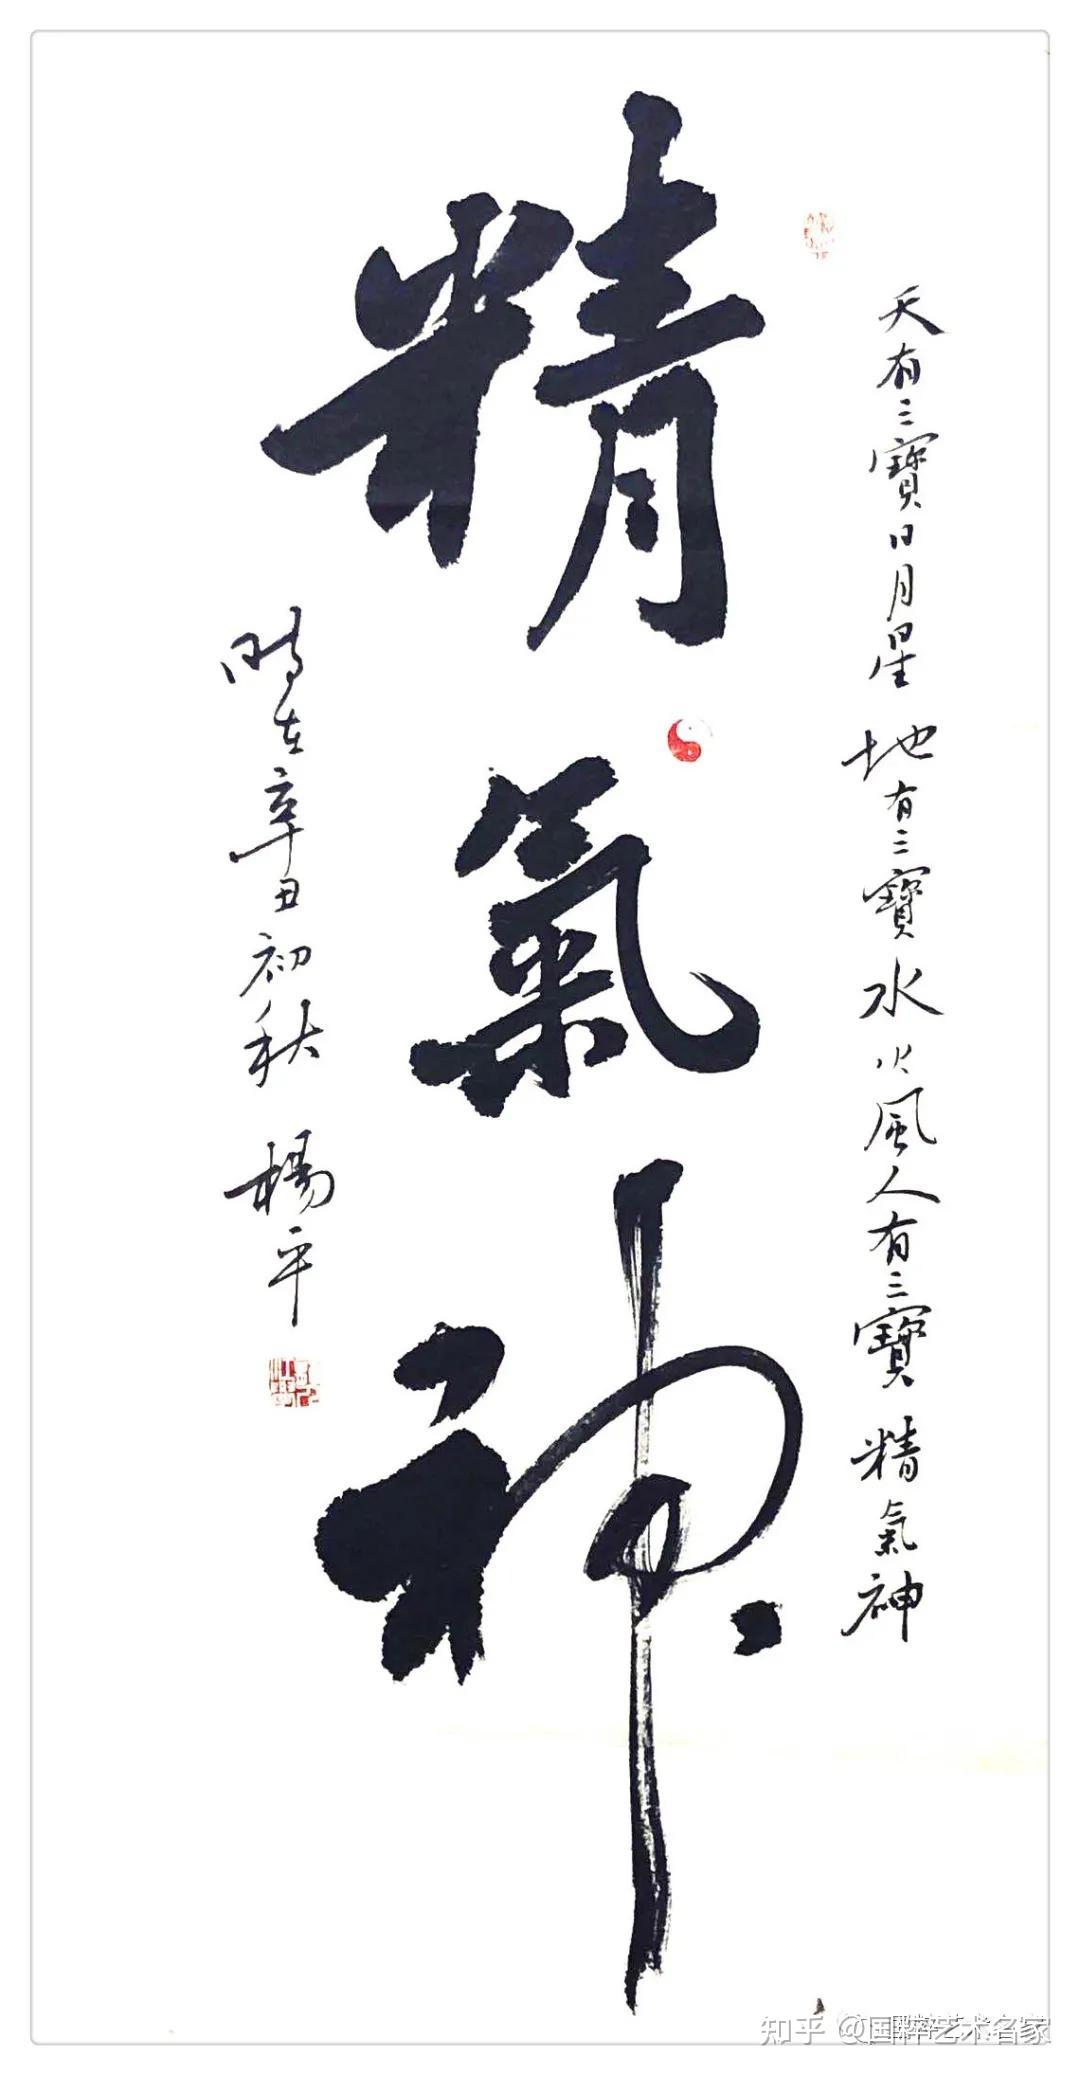 天有三寶日月星 地有三寶水火風人有三寶 精氣神
精氣神
時在辛丑初秋 楊平
知乎 @国粹艺术名家